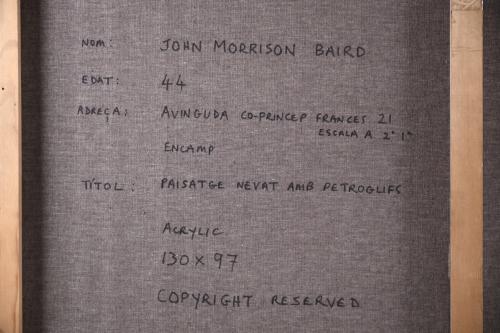 NOM: JOHN MORRISON BAIRD
EDAT: 44
ADREÇA: AVINGUDA CO-PRINCEP FRANCES 21
ESCALA A 2º 1ª
ENCAMP
TÍTOL: PAISATGE NEVAT AMB PETROGLIFS
ACRYLIC
130 x 97
COPYRIGHT RESERVED